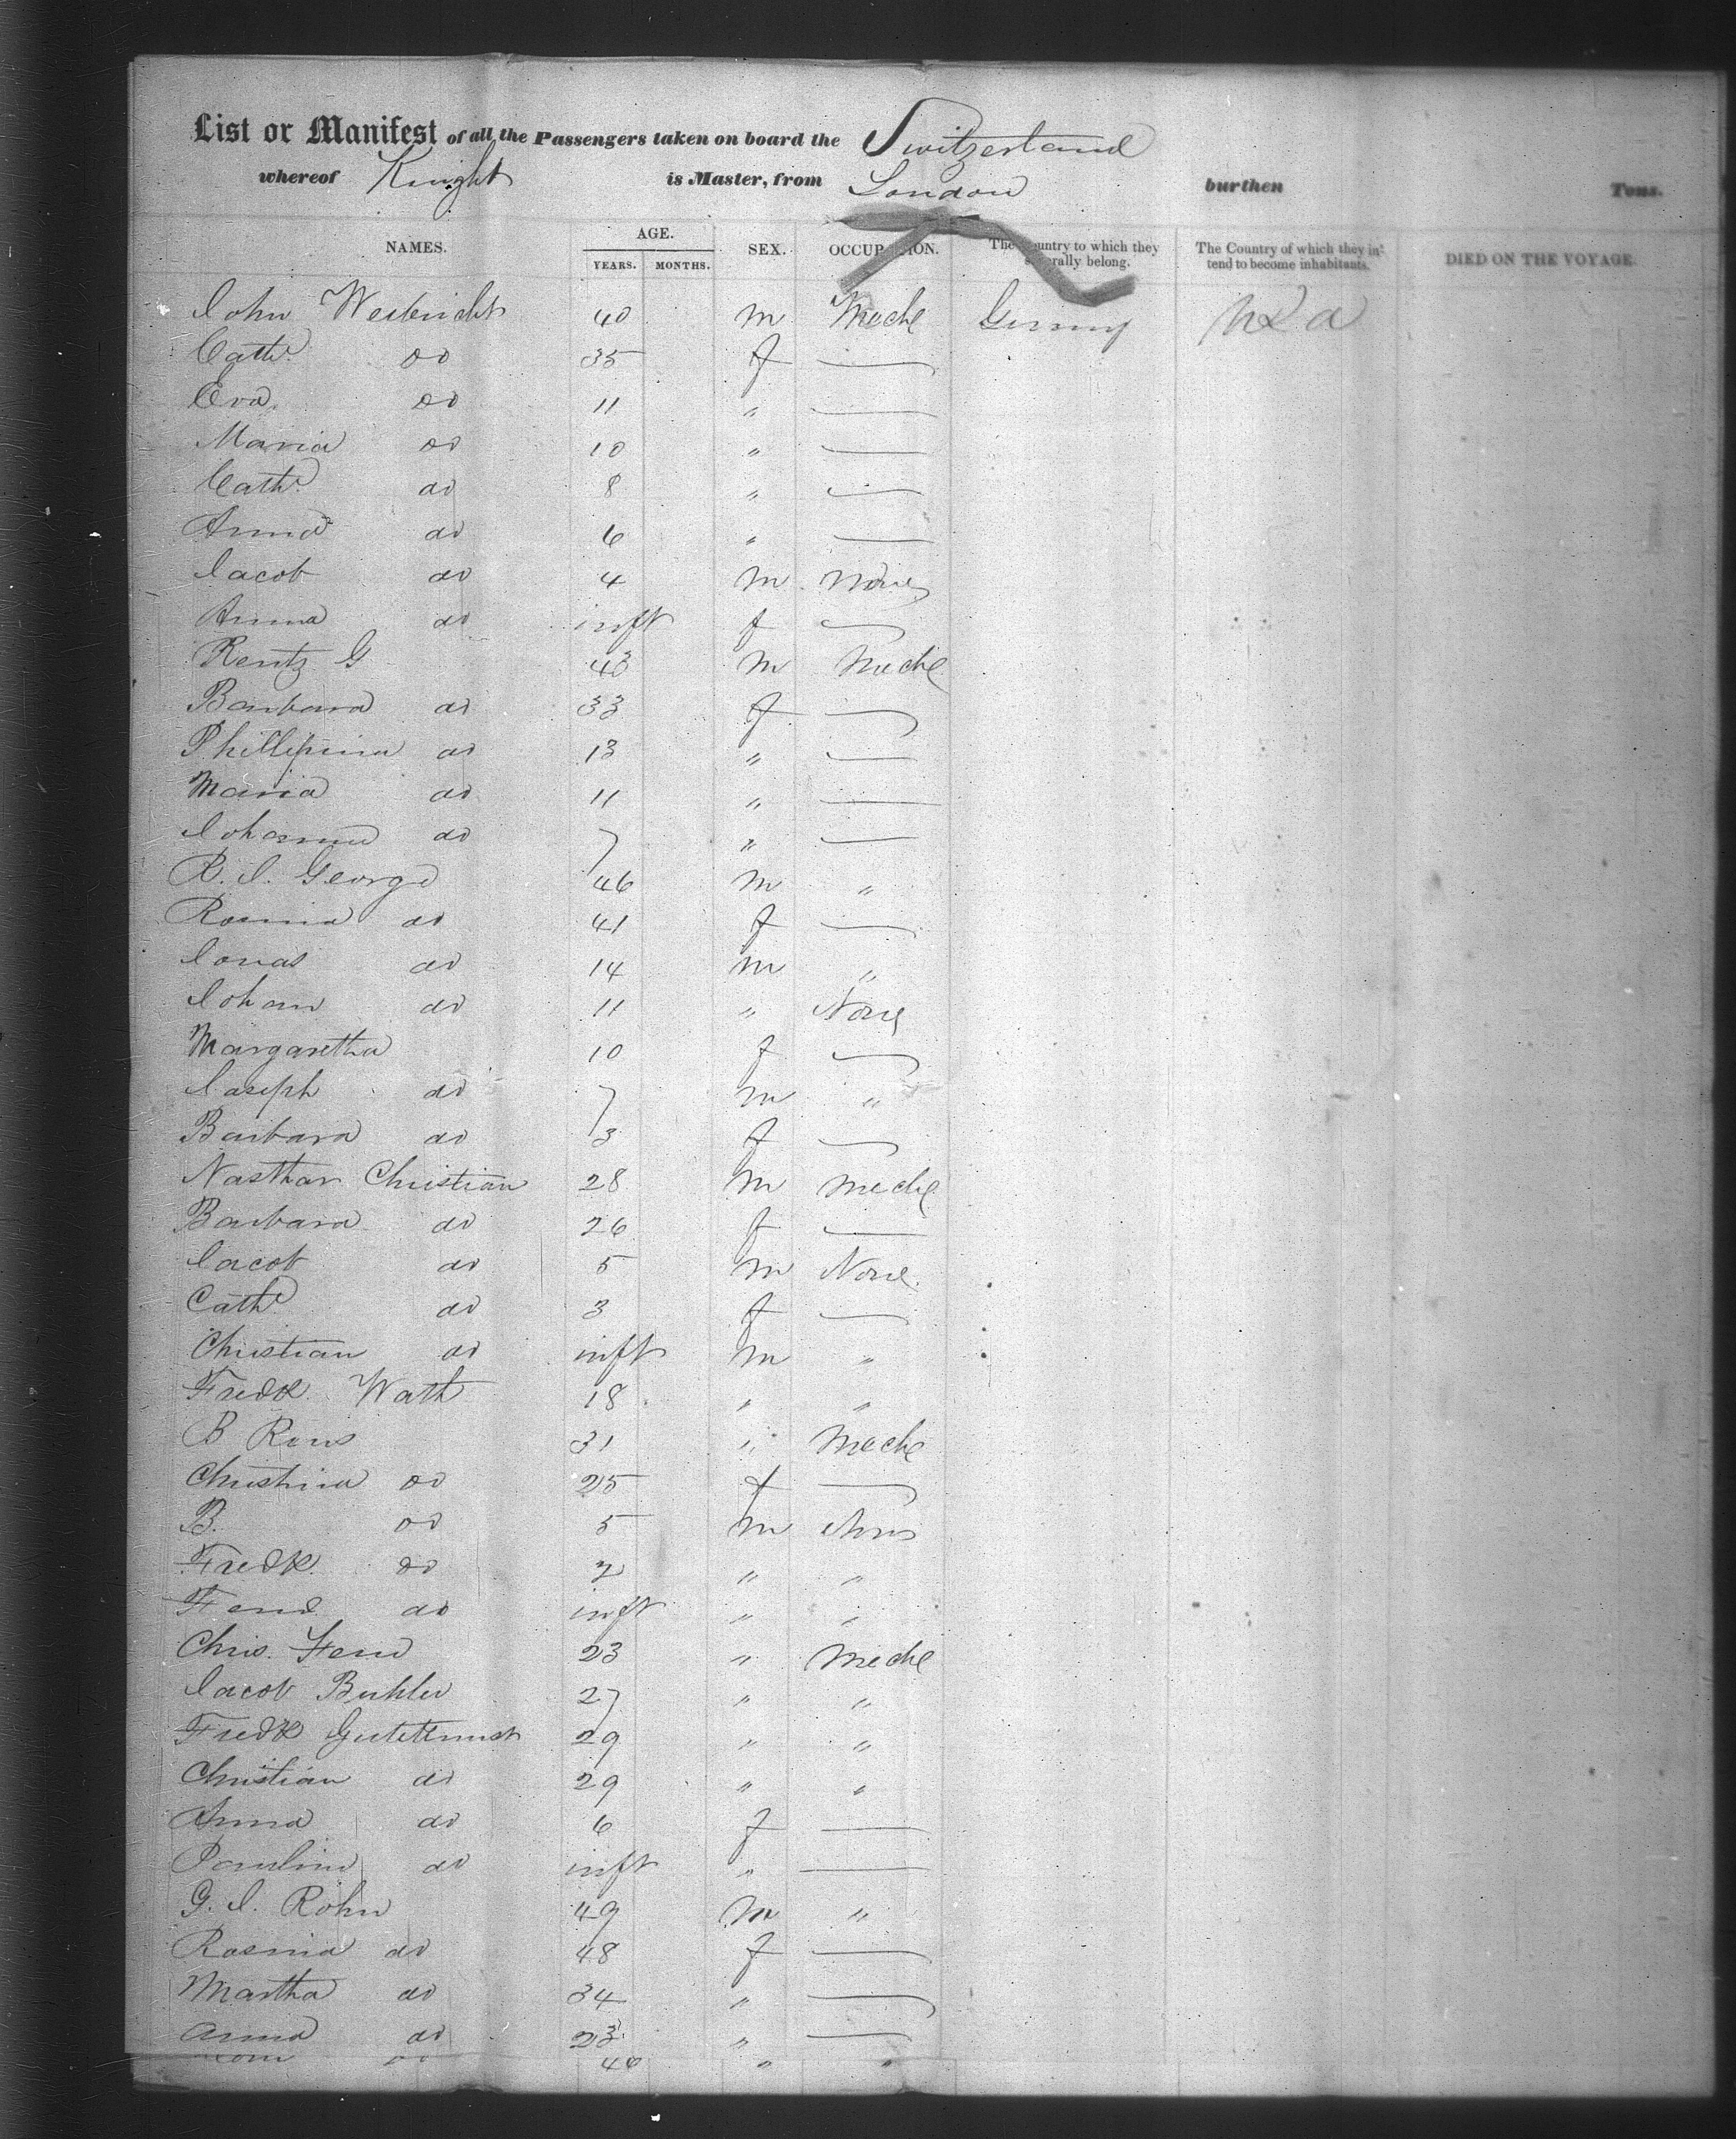 List or Manifest of all the Passengers taken on board the Switzerland
whereof Knight is Master, from London burthen Tons.
NAMES. AGE. YEARS. MONTHS. SEX. OCCUPATION. The Country to which they severally belong. The Country of which they intend to become inhabitants. DIED ON THE VOYAGE.
John 40 m Meche Germy U S a
Cath. do 35 f —
Eva do 11 " —
Maria do 10 " —
Cath. do 8 " —
Anna do 6 " —
Jacob do 4 m None
Anna do inft f —
Rentz G 43 m Meche
Barbara do 33 f —
Phillipina do 13 " —
Maria do 11 " —
Johanna do 7 " —
R. J. George 46 m "
Rosina do 41 f —
Jonas do 14 m "
Johann do 11 " None
Margaretha 10 f —
Joseph do 7 m "
Barbara do 3 f —
Nasthar Christian 28 m Meche
Barbara do 26 f —
Jacob do 5 m None
Cath do 3 f —
Christian do inft m "
Fredk. Wath 18 " "
B 31 " Meche
Christina do 25 f —
B. do 5 m None
Fredk. do 2 " "
Ferd do inft " "
Chris. 23 " Meche
Jacob Buhler 27 " "
Fredk 29 " "
Christian do 29 " "
Anna do 6 f —
Paulina do inft " —
G. J. Rohn 49 m "
Rosina do 48 f —
Martha do 34 " —
Anna do 23 " —
do 46 " "